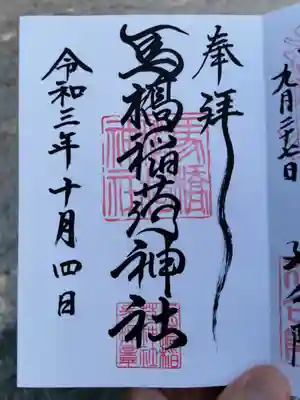 九月二十七日
奉拝
馬橋稲荷神社
令和三年十月四日